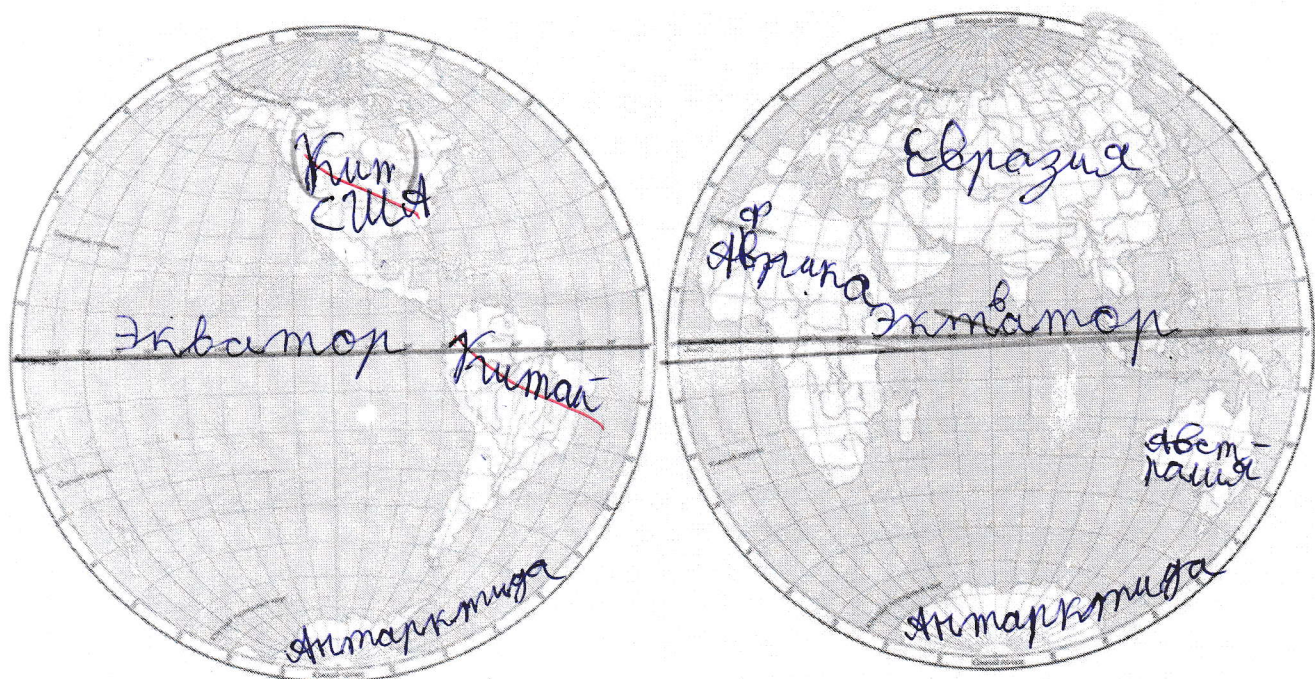 Кит
США
Экватор
Китай
Антарктида
Евразия
ф
Аврика
в
Эктатор
Авст-
ралия
Антарктида